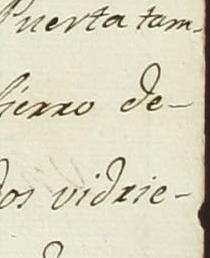 Puerta tam-
hierro de-
dos vidrie-